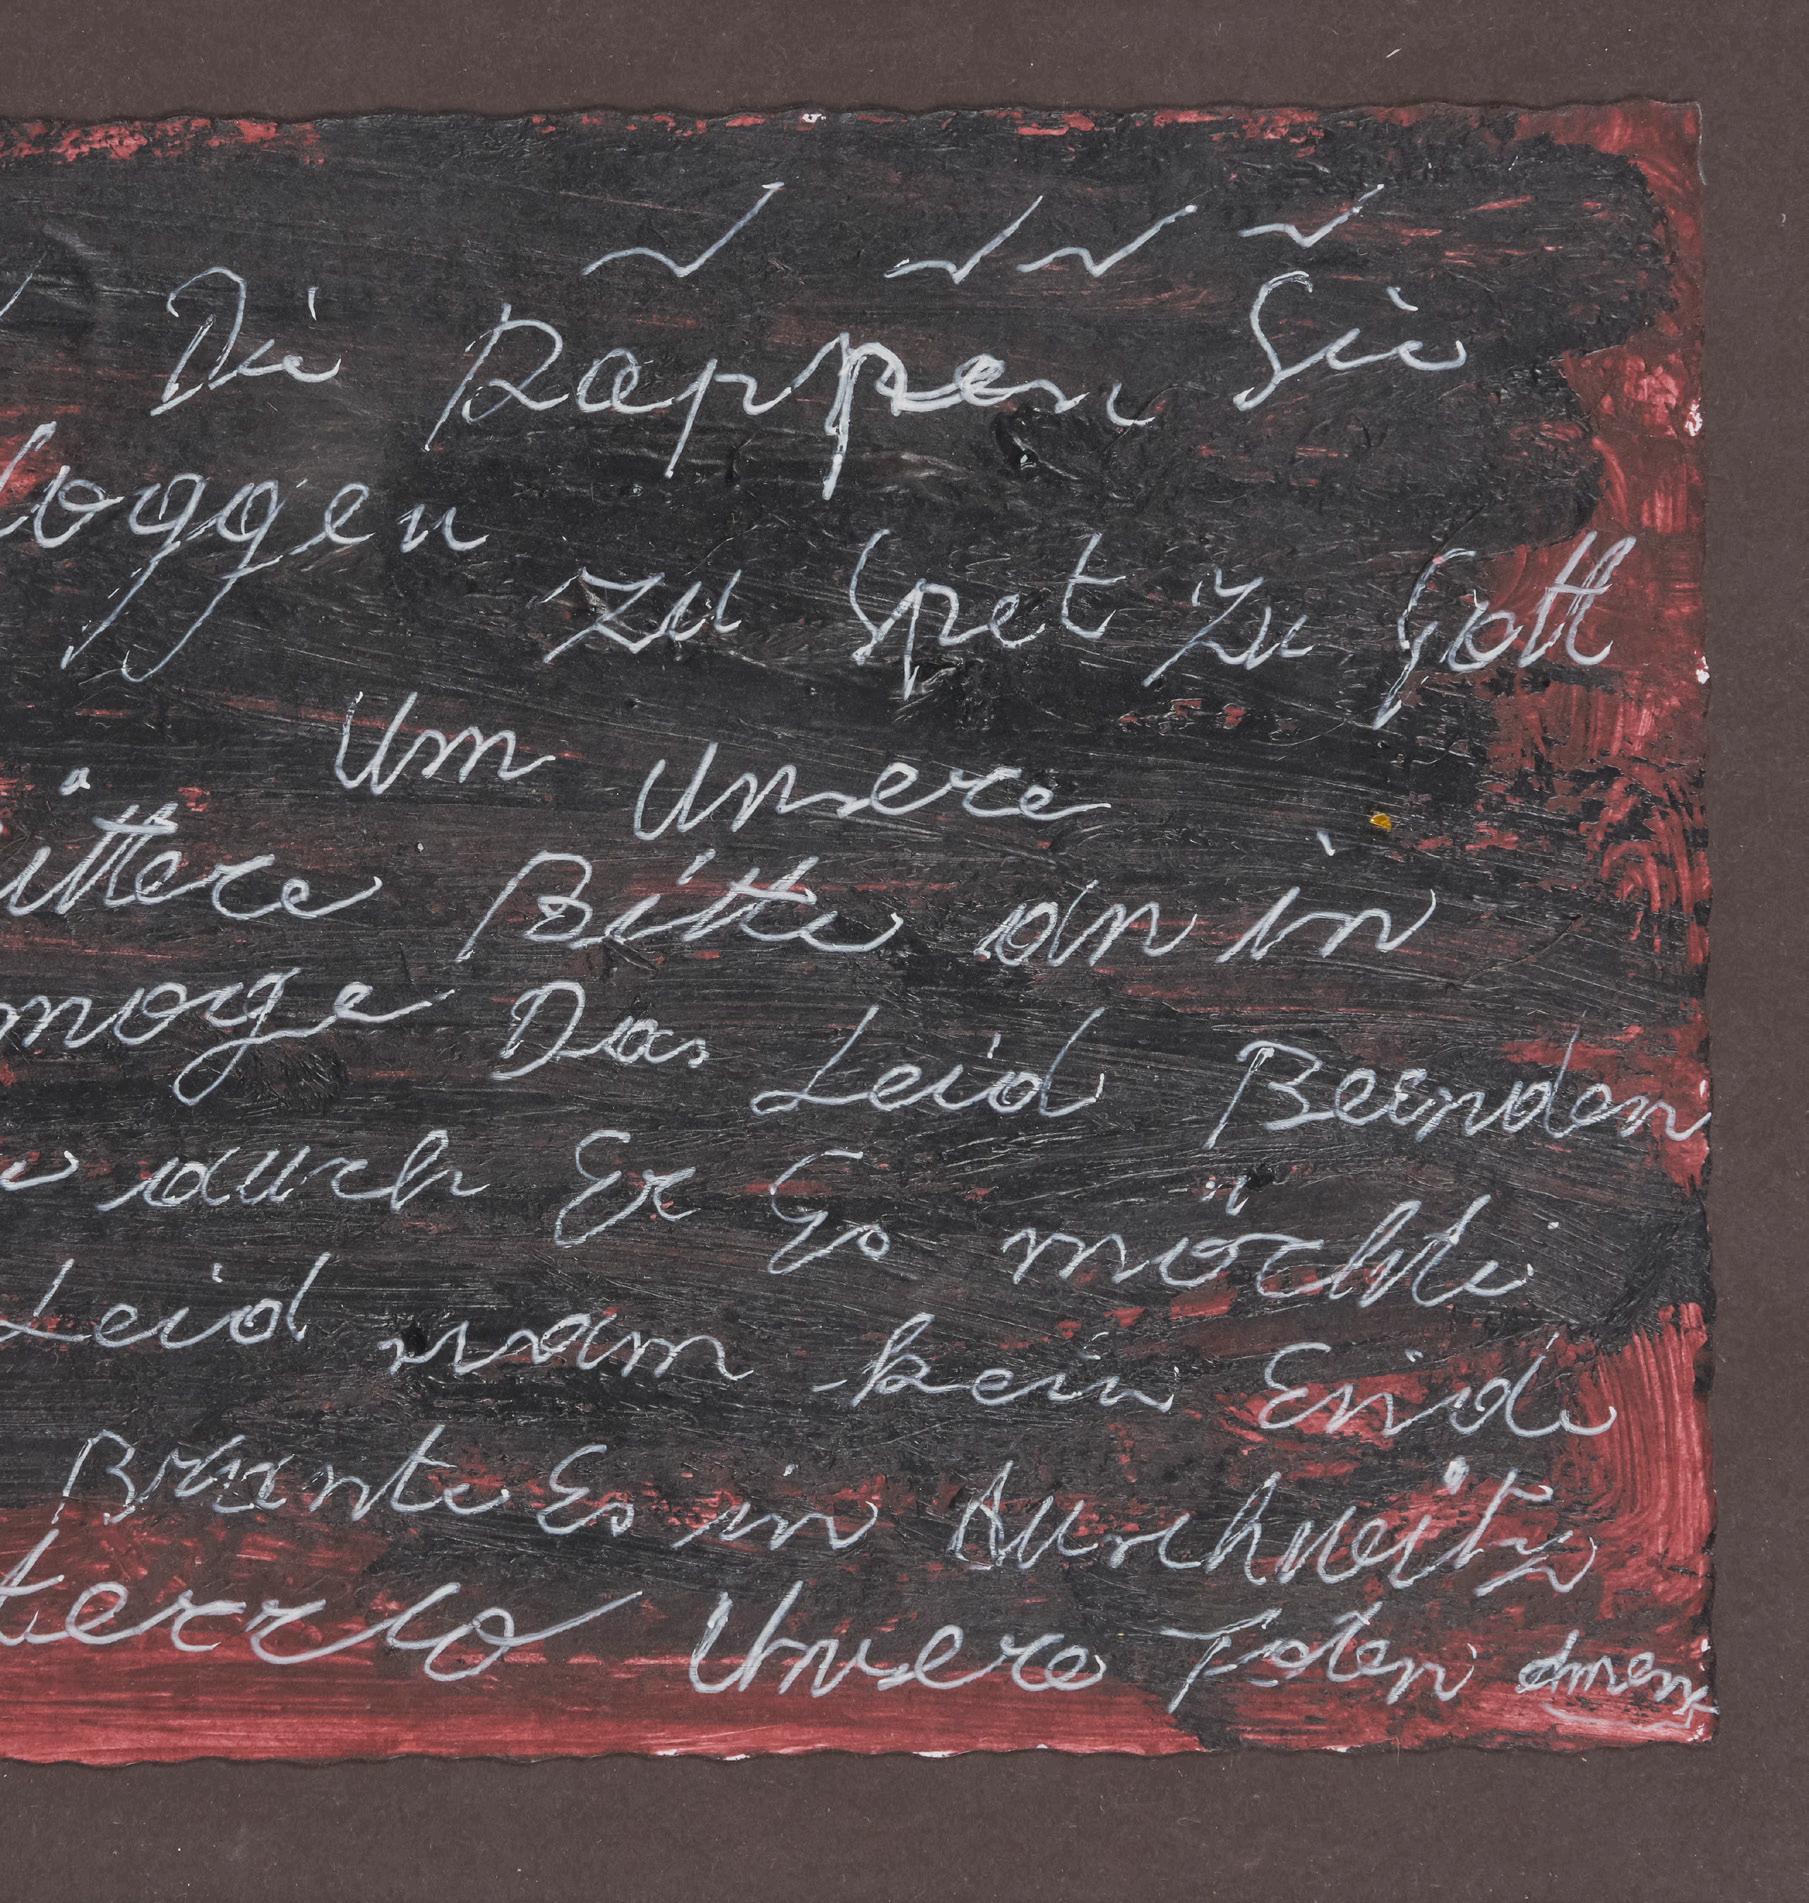 Die Rappen Sie
loggen zu Spet zu Gott
Um Unsere
ittere Bitte an in
moge Das Leid Beenden
auch Er Es möchte
Leid nam kein Ende
Brannte Es in Auschweitz
Unsere Toten amen